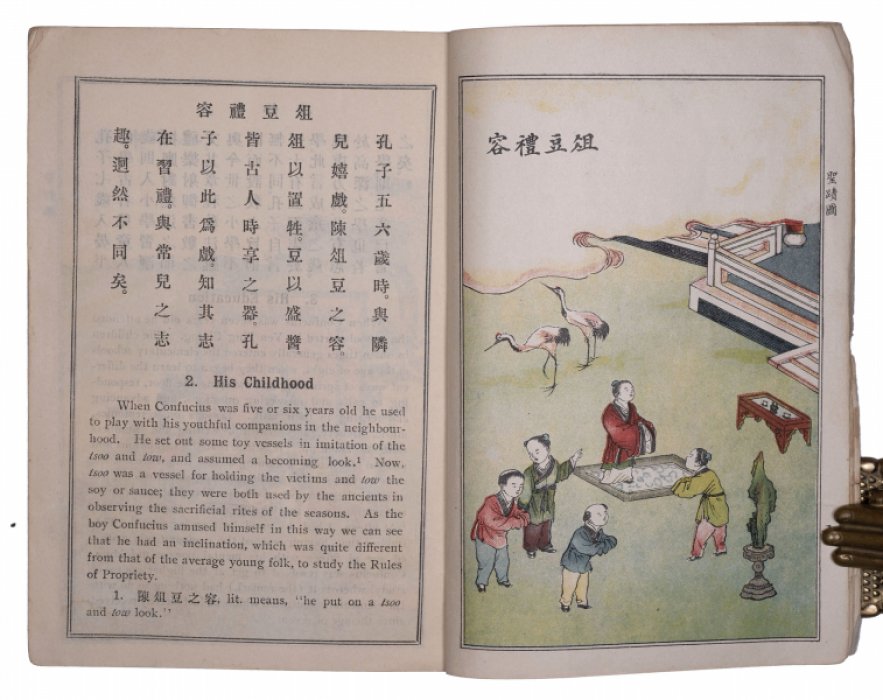 俎豆禮容
孔子五六歲時。與隣
兒嬉戲。陳俎豆之容。
俎以置牲。豆以盛醬
皆古人時享之器。孔
子以此爲戲。知其志
在習禮。與常兒之志
趣。迥然不同矣。
2. His Childhood
When Confucius was five or six years old he used
to play with his youthful companions in the neighbour-
hood. He set out some toy vessels in imitation of the
tsoo and tow, and assumed a becoming look.¹ Now,
tsoo was a vessel for holding the victims and tow the
soy or sauce; they were both used by the ancients in
observing the sacrificial rites of the seasons. As the
boy Confucius amused himself in this way we can see
that he had an inclination, which was quite different
from that of the average young folk, to study the Rules
of Propriety.
1. 陳俎豆之容, lit. means, "he put on a tsoo
and tow look."
俎豆禮容
聖蹟圖